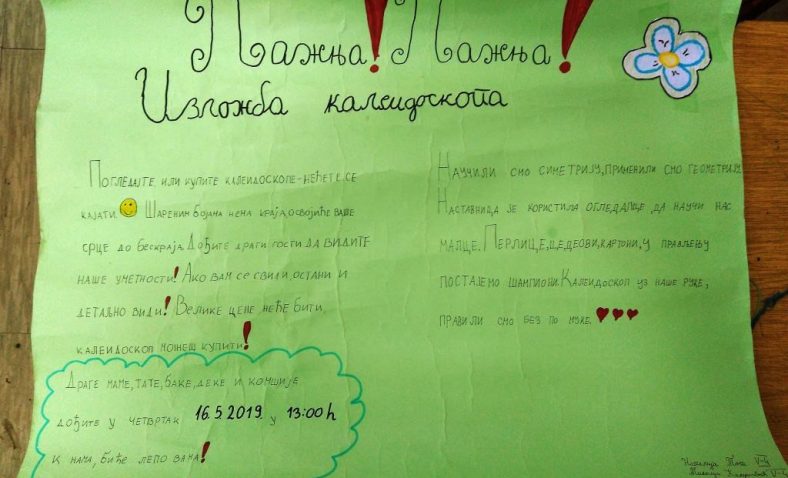 Пажња! Пажња!
Изложба калеидоскопа
Погледајте или купите калеидоскопе-нећете се
кајати. Шареним бојама нема краја, освојиће ваше
срце до бескраја. Дођите драги гости да видите
наше уметности! Ако вам се свиди, остани и
детаљно види! Велике цене неће бити,
калеидоскоп можеш купити!
Драге маме, тате, баке, деке и комшије
дођите у четвртак 16.5.2019. у 13:00h
к нама, биће лепо вама!
Научили смо симетрију, применили смо геометрију.
Наставница је користила огледалце, да научи нас
малце. Перлице, цедеови, картони, у прављењу
постајемо шампиони. Калеидоскоп уз наше руке,
правили смо без по муке.
V-4
V-4